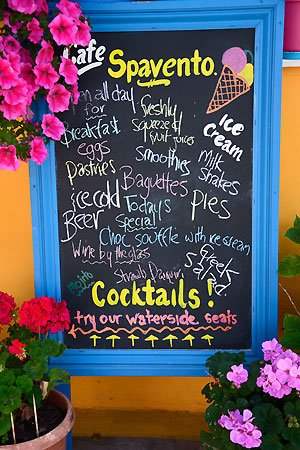 Cafe Spavento.
open all day
for
Breakfast
eggs
Pastries
Freshly
Squeezed
fruit juices
Smoothies
Ice
cream
Milk
Shakes
Baguettes
Pies
ice cold
Beer
Today's
Special
Choc soufflé with ice cream
Wine by the glass
Greek
Salad
Mojito
Strawb Daiquiri
Cocktails!
try our waterside seats